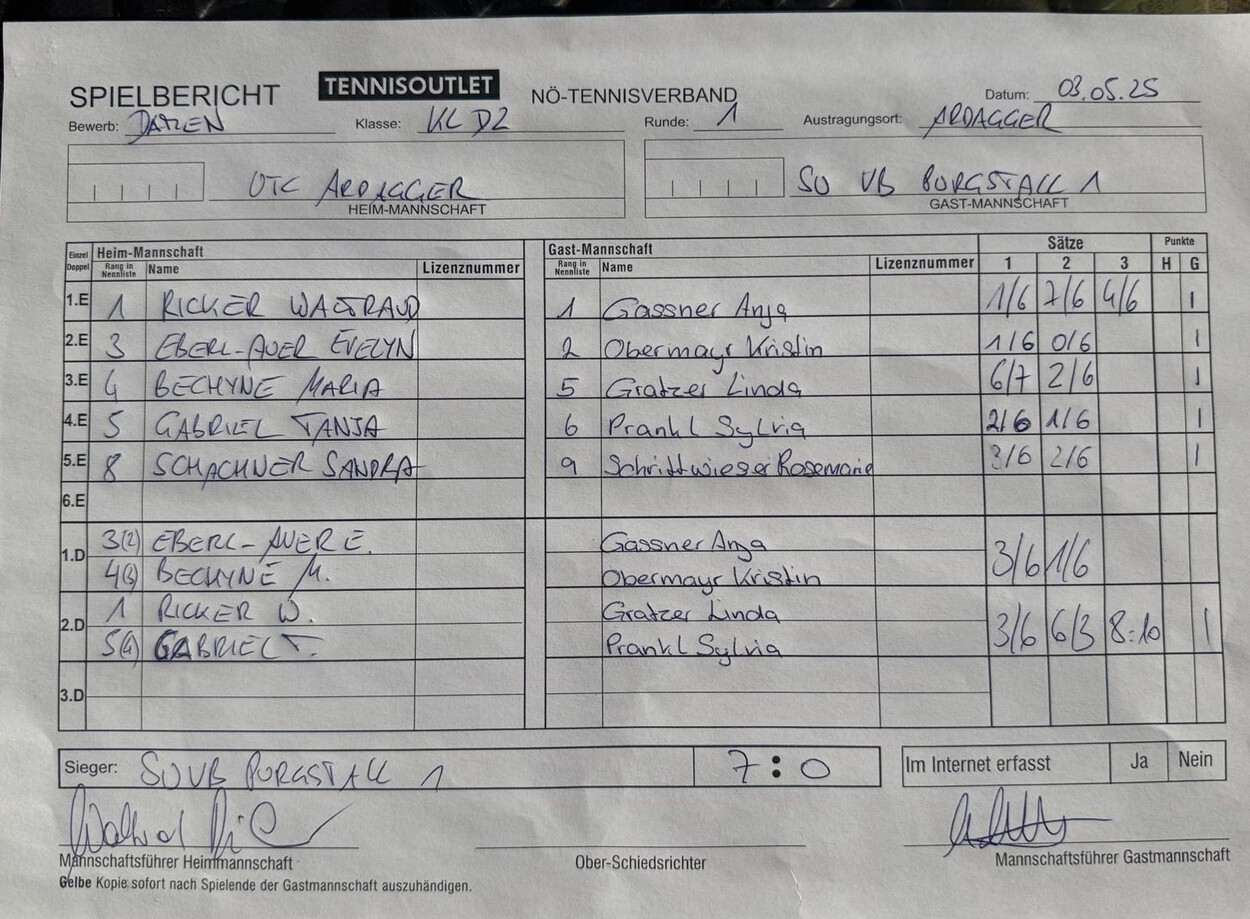 SPIELBERICHT TENNISOUTLET NÖ-TENNISVERBAND Datum: 03.05.25
Bewerb: DAMEN Klasse: KL D2 Runde: 1 Austragungsort: ARDAGGER
UTC ARDAGGER SU VB PURGSTALL 1
HEIM-MANNSCHAFT GAST-MANNSCHAFT
Einzel Doppel Heim-Mannschaft Gast-Mannschaft Sätze Punkte
Rang in Nennliste Name Lizenznummer Rang in Nennliste Name Lizenznummer 1 2 3 H G
1.E 1 RICKER WALTRAUD 1 Gassner Anja 1/6 7/6 4/6 1
2.E 3 EBERL-AUER EVELYN 2 Obermayr Kristin 1/6 0/6 1
3.E 4 BECHYNE MARIA 5 Gratzer Linda 6/7 2/6 1
4.E 5 GABRIEL TANJA 6 Prankl Sylvia 2/6 1/6 1
5.E 8 SCHACHNER SANDRA 9 Schrittwieser Rosemarie 3/6 2/6 1
6.E
1.D 3(2) EBERL-AUER E. Gassner Anja 3/6 1/6
4(3) BECHYNE M. Obermayr Kristin
2.D 1 RICKER W. Gratzer Linda 3/6 6/3 8:10 1
5(4) GABRIEL T. Prankl Sylvia
3.D
Sieger: SU VB PURGSTALL 1 7:0 Im Internet erfasst Ja Nein
Mannschaftsführer Heimmannschaft Ober-Schiedsrichter Mannschaftsführer Gastmannschaft
Gelbe Kopie sofort nach Spielende der Gastmannschaft auszuhändigen.